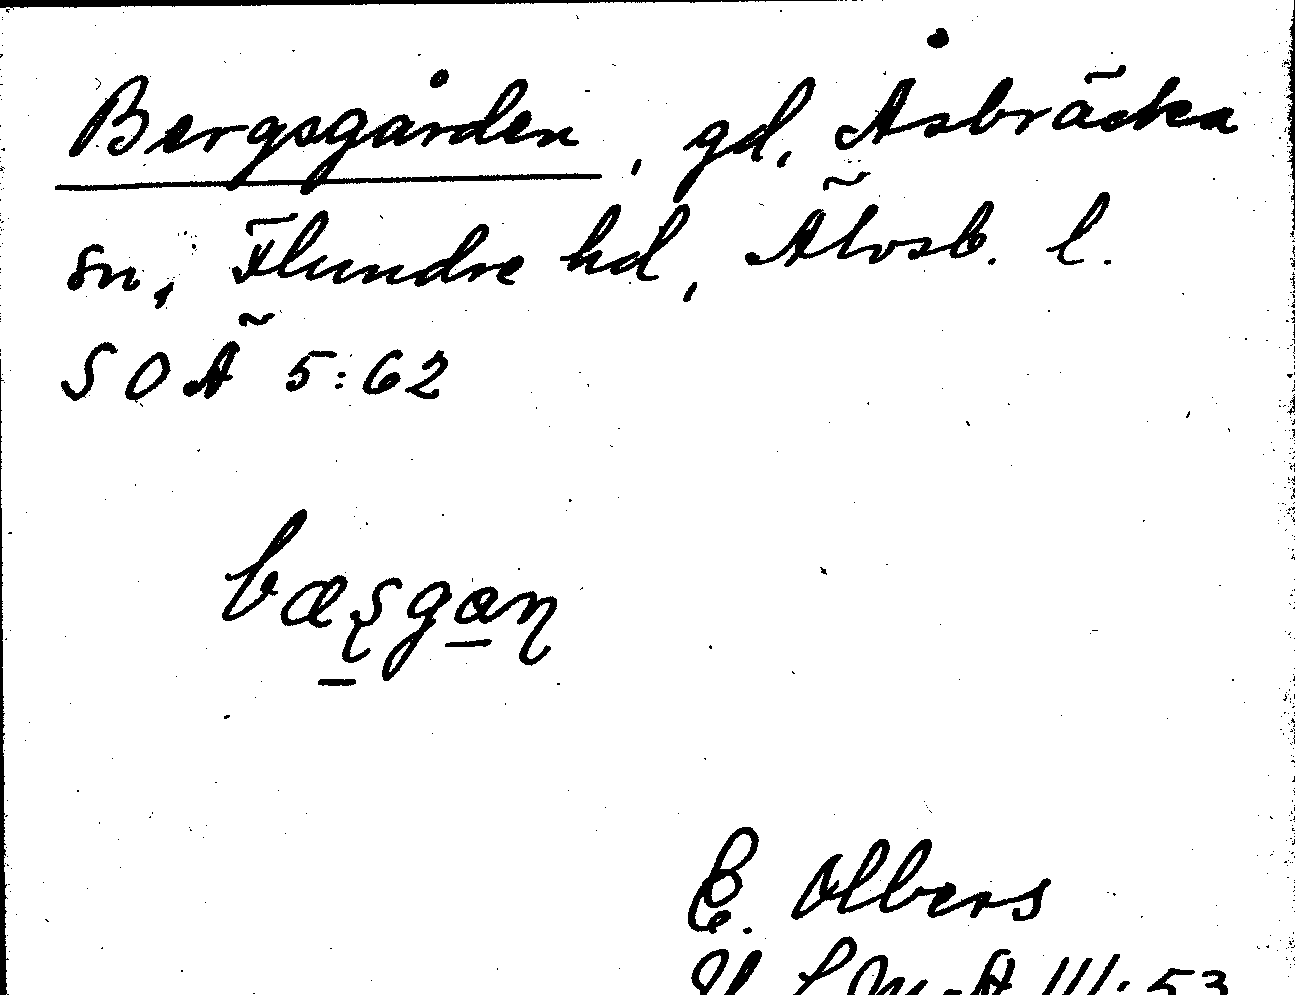 Bergsgården, gd, Åsbräcka
sn, Flundre hd, Älvsb. l.
SOÄ 5:62
bæʂgaɳ
E. Olbers
III:53